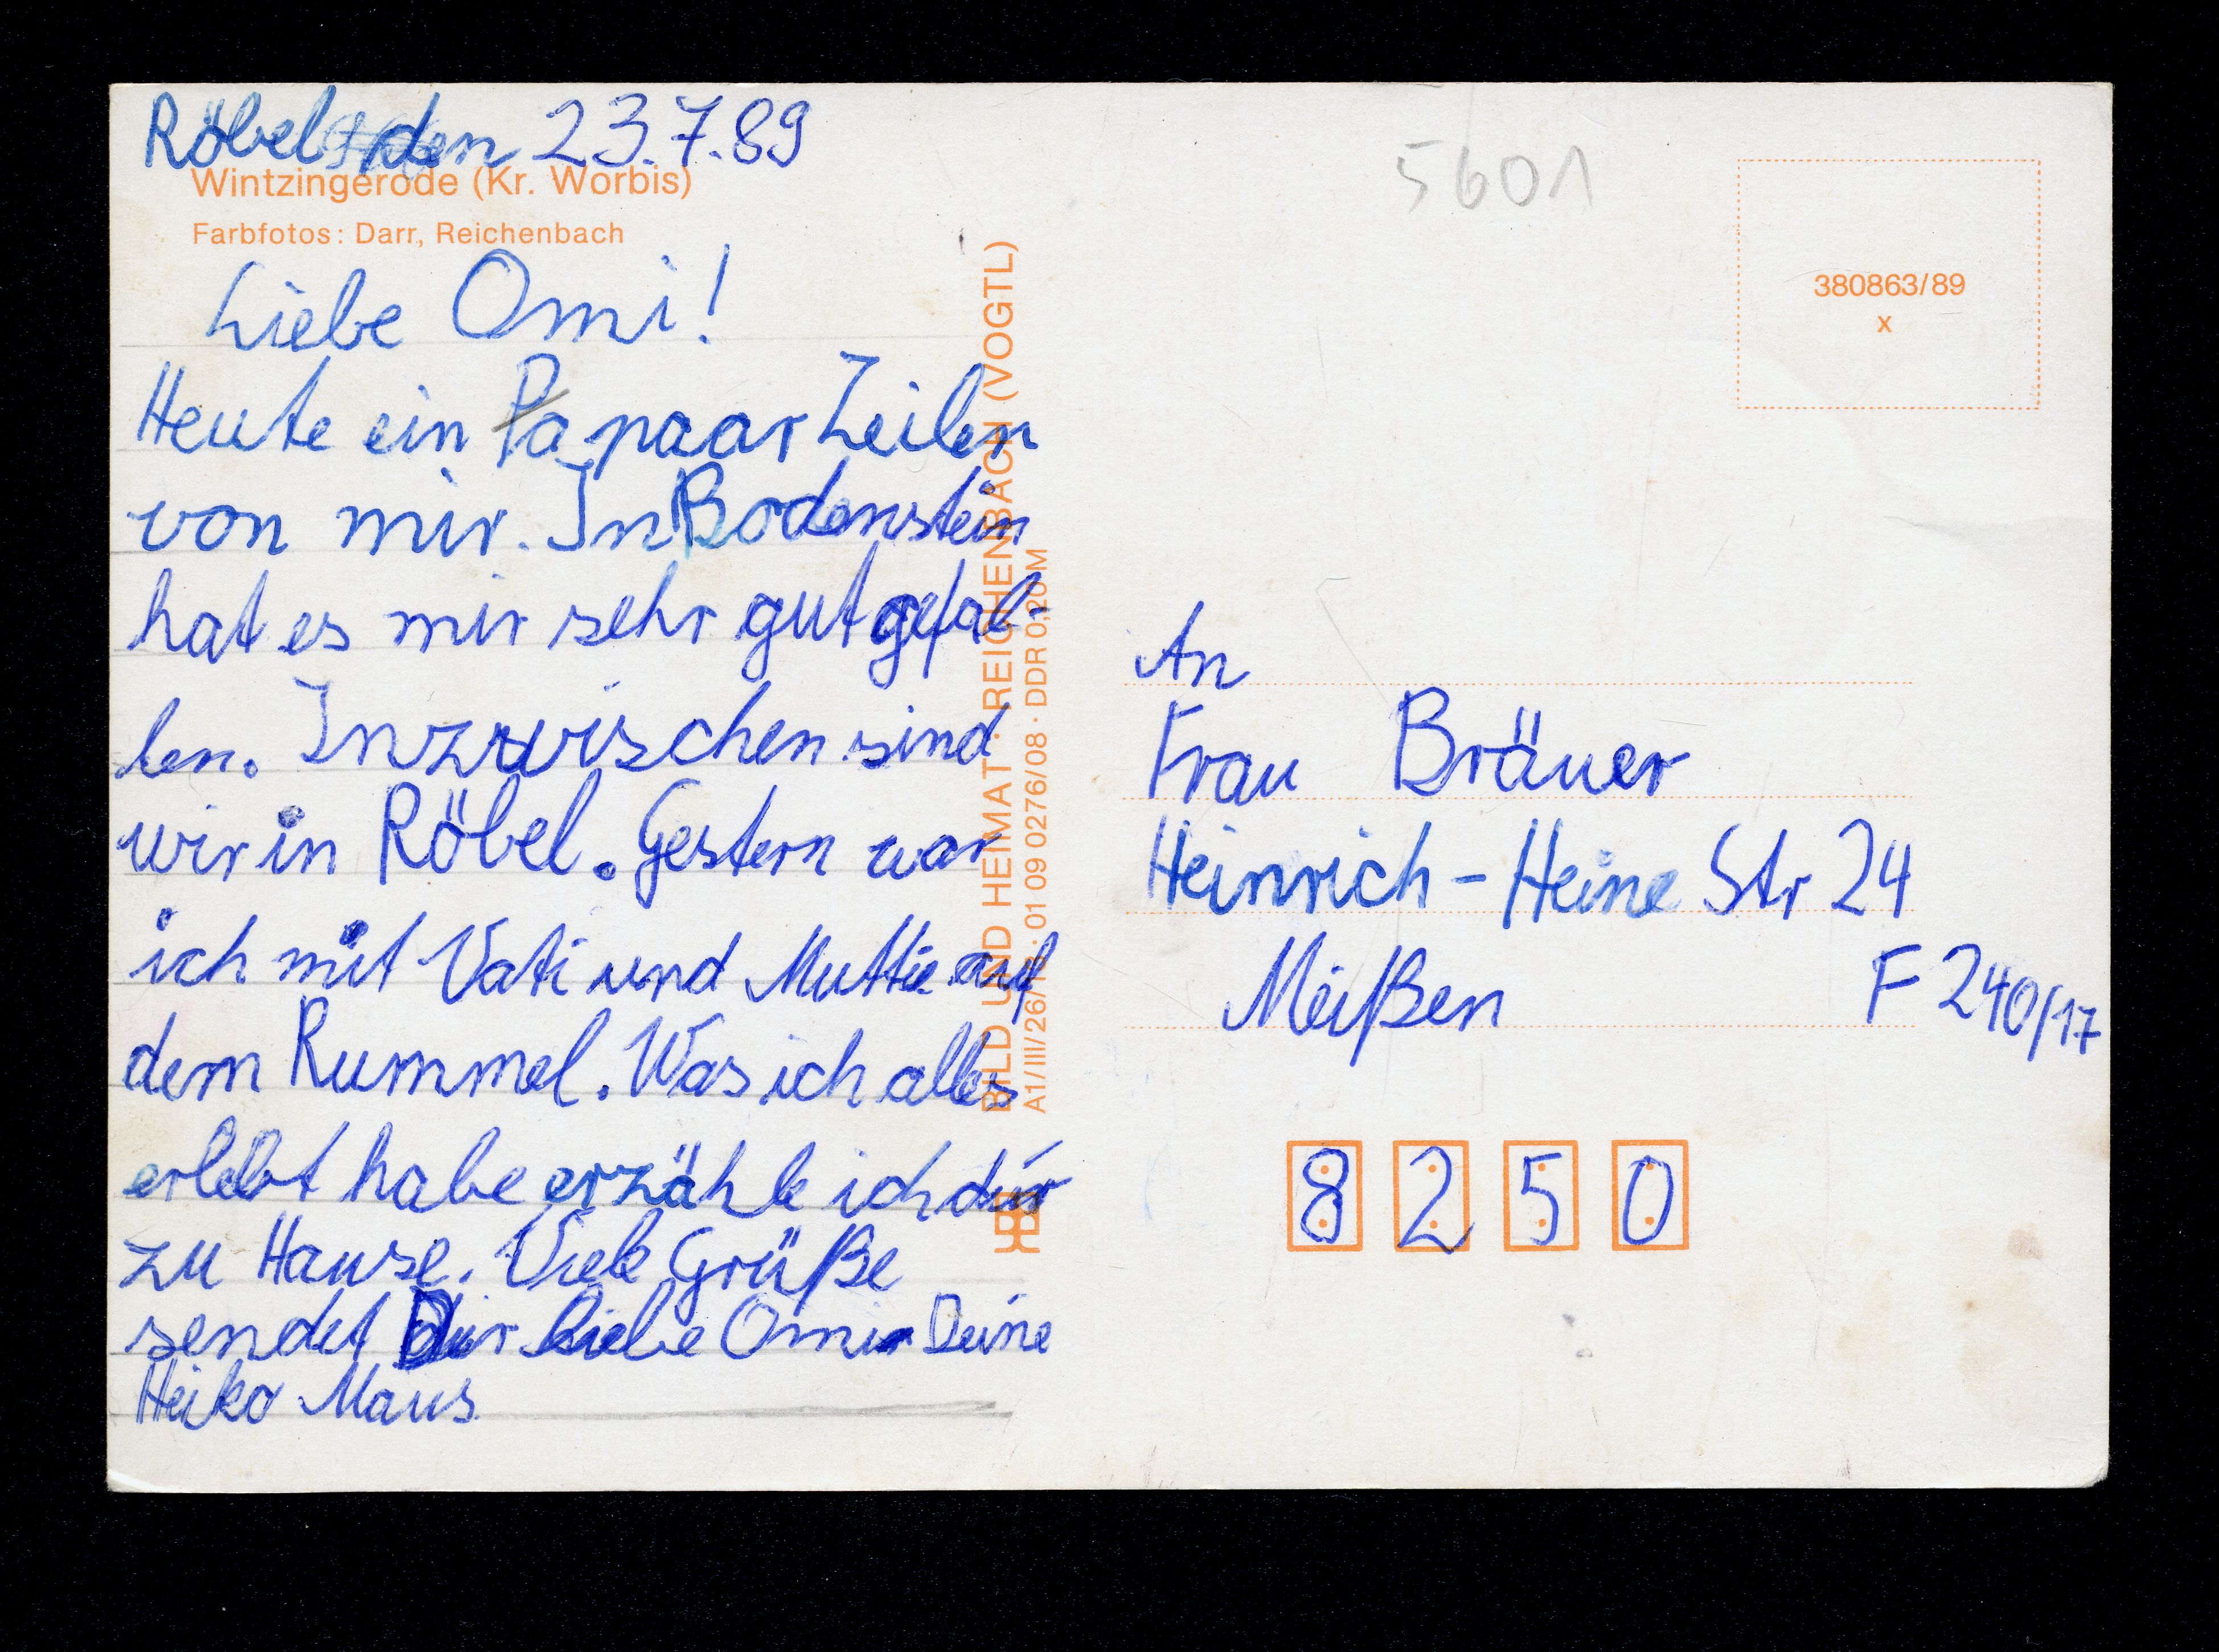 Röbel den 23.7.89
Wintzingerode (Kr. Worbis)
Farbfotos: Darr, Reichenbach
Liebe Omi!
Heute ein Pa paar Zeilen
von mir. In Bodenstein
hat es mir sehr gut gefal-
len. Inzwischen sind
wir in Röbel. Gestern war
ich mit Vati und Mutti auf
dem Rummel. Was ich alles
erlebt habe erzähle ich dir
zu Hause. Viele Grüße
sendet Dir liebe Omi Deine
Heiko Maus
BILD UND HEIMAT · REICHENBACH (VOGTL)
A1/III/26/13 · 01 09 0276/08 · DDR 0,20 M
5601
380863/89
x
An
Frau Bräuer
Heinrich-Heine Str 24
Meißen F 240/17
8250